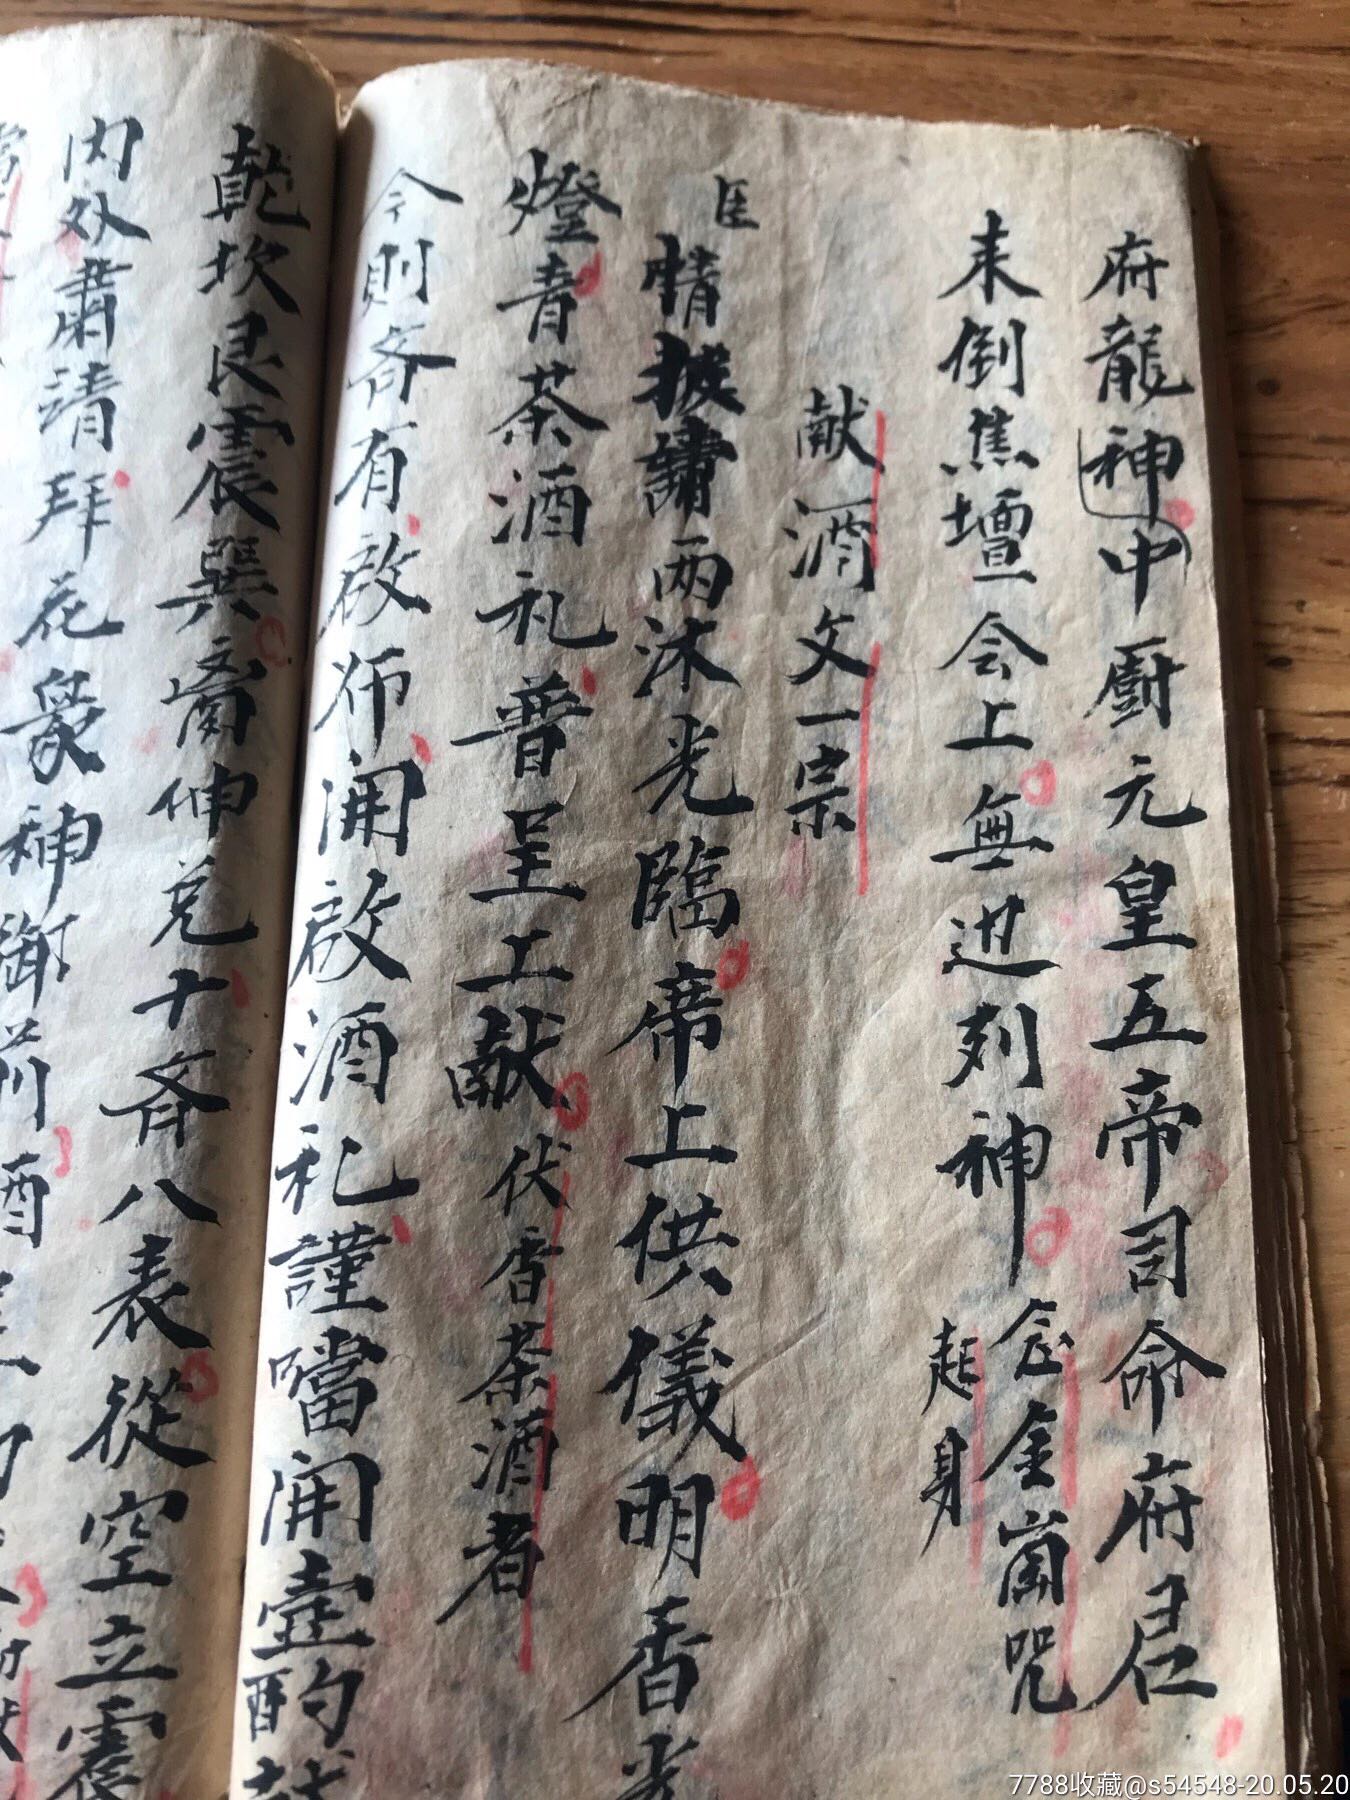 府龍神中厨元皇五帝司命府君
来到焦壇会上無边列神
念金崗咒
起身
献酒文一宗
臣
情披讀兩沐光臨席上供儀明香
燈青茶酒礼普呈工献伏香茶酒者
今則斉有啟师開啟酒礼謹當開壺酌献
乾坎艮震巽离伸兑十斉八表從空立震
内外肅靖拜花衆神御前酉
7788收藏@s54548-20.05.20